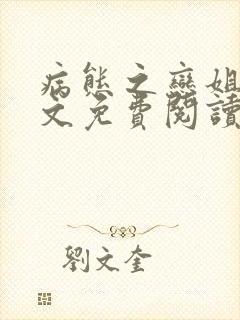 病態之戀姐
文免費閱讀
劉文奎